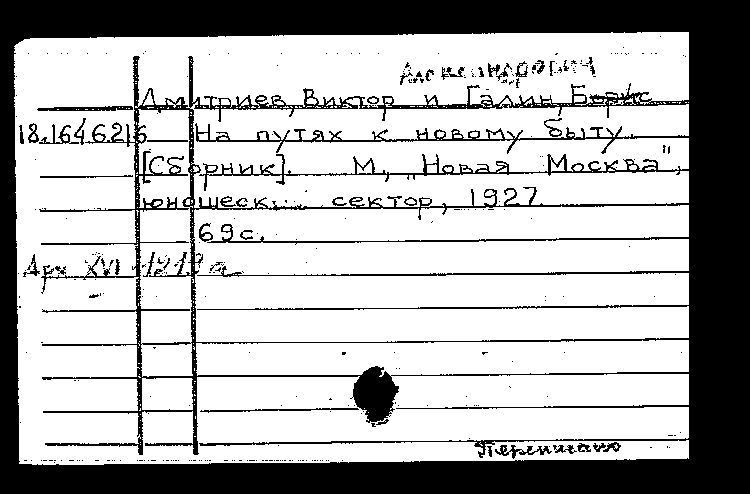 Александрович
Дмитриев, Виктор и Галин, Борис
18.164.6.216 На путях к новому быту.
[Сборник]. М., „Новая Москва",
юношеск... сектор, 1927.
69 с.
Арх XVI - 1213 а
Переписано